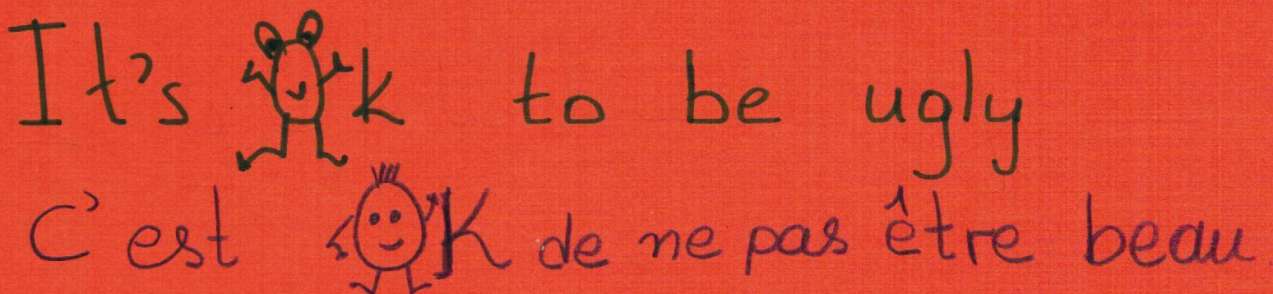 It's Ok to be ugly
C'est OK de ne pas être beau.